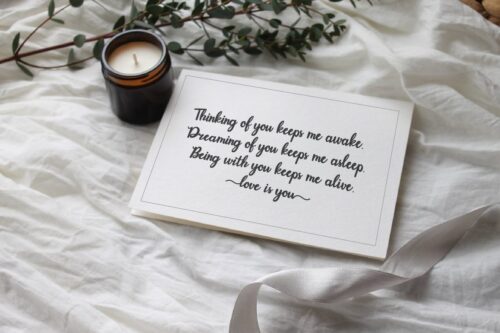 Thinking of you keeps me awake.
Dreaming of you keeps me asleep.
Being with you keeps me alive.
~love is you~